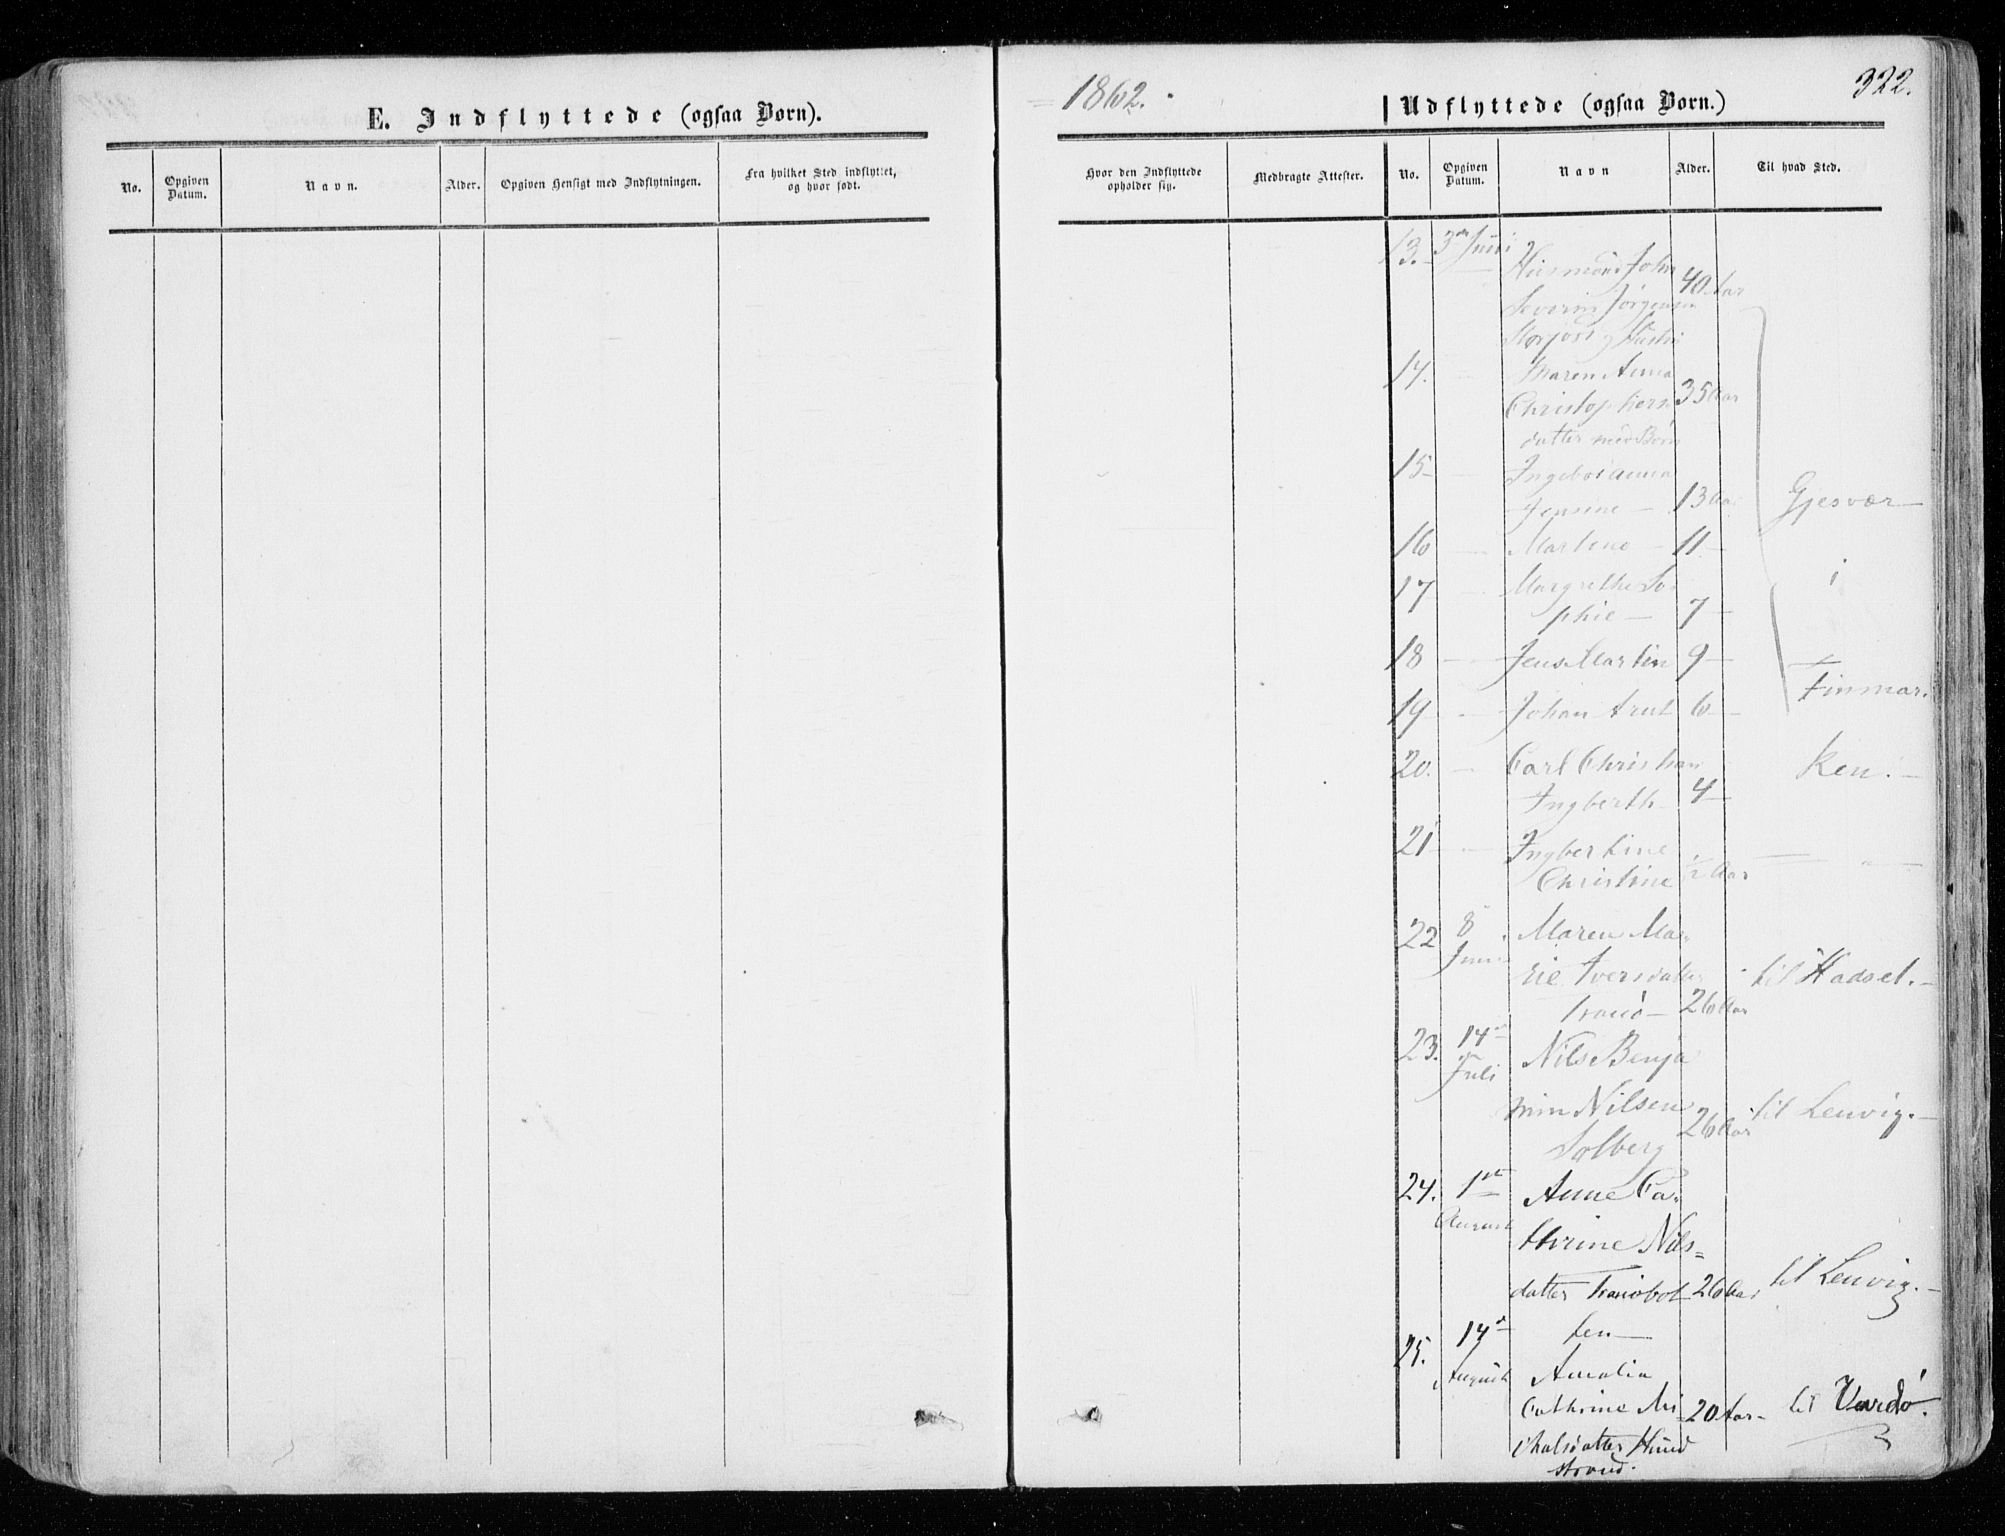 E. Indflyttede (ogsaa Børn).
No.
Opgiven Datum.
Navn.
Alder.
Opgiven Hensigt med Indflytningen.
Fra hvilket Sted indflyttet, og hvor født.
1862.
322.
Udflyttede (ogsaa Børn.)
Hvor den Indflyttede opholder sig.
Medbragte Attester.
No.
Opgiven Datum.
Navn
Alder.
Til hvad Sted.
13. 3 Juni
Huusmand John 40 Aar
Severin Jørgensen
14. Maren Anna
Christophers 35 Aar
datter med Børn
15 Ingebor Anna
Jensine 13 Aar
Gjesvær
16 Martine 11
i
17 Margrethe So
phie 7
18 Jens Martin 9
Finmar.
19 Johan Arnt 6
20. Carl Christian
ken.
Ingberth 4
21 Ingbertine
Christine ½ Aar
22 8 Maren Ma
Juni
rie Iversdatter til Hadsel.
Tranö 26 Aar
23. 14 Nils Benja
Juli
min Nilsen 26 Aar til Lenvig.
Solberg
24. 1 Anne Ca
August
thrine Nils=
datter Tranöbot 26 Aar til Lenvig.
ten
25. 14
August Amalia
Cathrine Mi 20 Aar til Vardö.
chalsdatter Hund
strand.